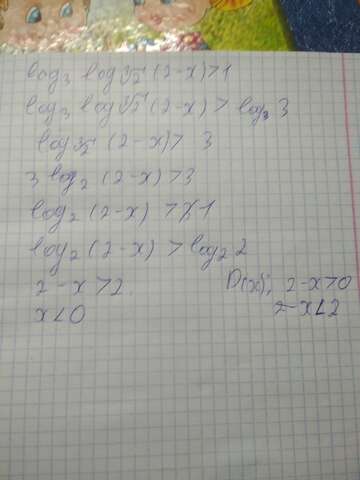 log₃ log∛2 (2-x)>1
log₃ log∛2 (2-x) > log₃ 3
log∛2 (2-x)> 3
3 log₂ (2-x) >3
log₂ (2-x) > 1
log₂ (2-x) > log₂ 2
2-x >2 D(x); 2-x>0
x<0 2-x<2